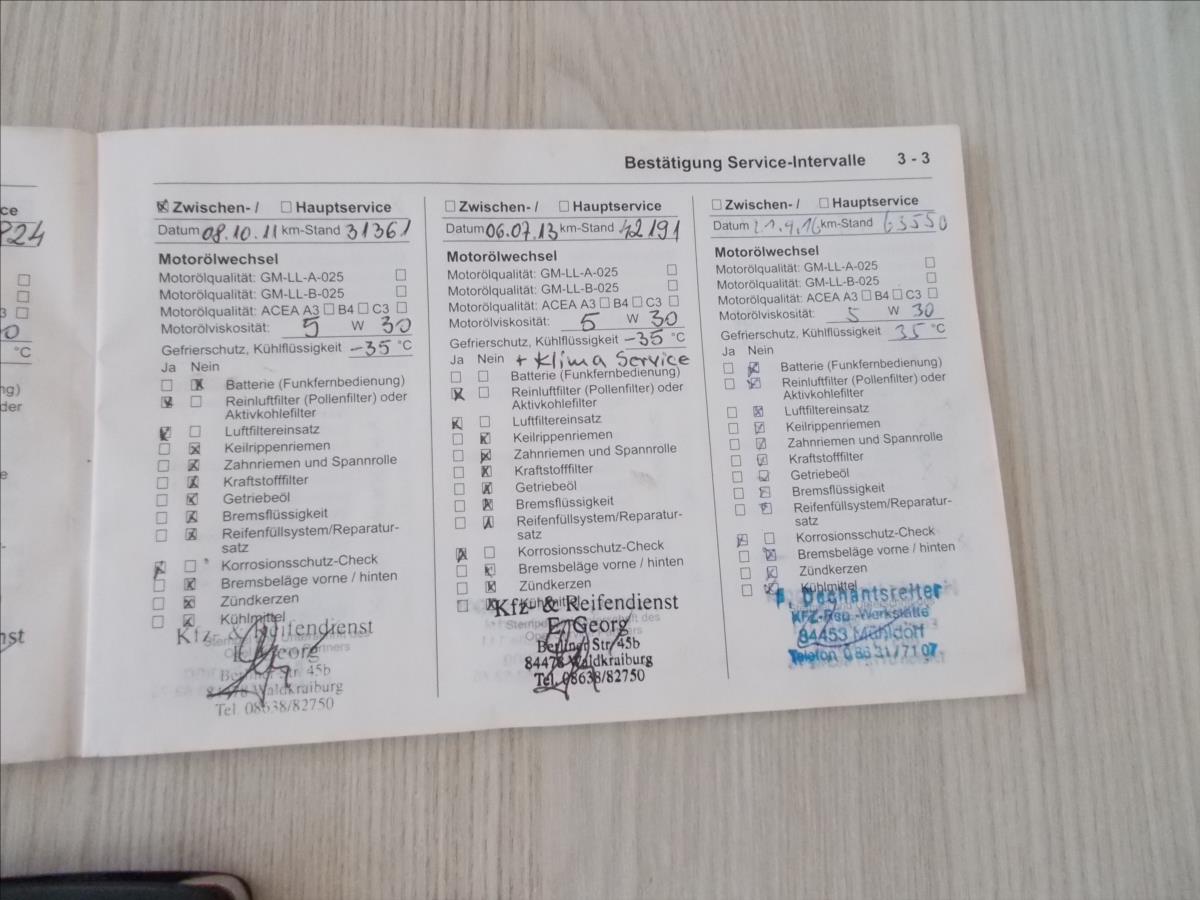 Bestätigung Service-Intervalle 3 - 3
ce
924
3
0
°C
ng)
der
e
nst
Zwischen- / Hauptservice
Datum 08.10.11 km-Stand 31361
Motorölwechsel
Motorölqualität: GM-LL-A-025
Motorölqualität: GM-LL-B-025
Motorölqualität: ACEA A3 B4 C3
Motorölviskosität: 5 W 30
Gefrierschutz, Kühlflüssigkeit -35 °C
Ja Nein
Batterie (Funkfernbedienung)
Reinluftfilter (Pollenfilter) oder
Aktivkohlefilter
Luftfiltereinsatz
Keilrippenriemen
Zahnriemen und Spannrolle
Kraftstofffilter
Getriebeöl
Bremsflüssigkeit
Reifenfüllsystem/Reparatur-
satz
Korrosionsschutz-Check
Bremsbeläge vorne / hinten
Zündkerzen
Kühlmittel
Kfz- & Reifendienst
E. Georg
Berliner Str. 45b
84478 Waldkraiburg
Tel. 08638/82750
Zwischen- / Hauptservice
Datum 06.07.13 km-Stand 42191
Motorölwechsel
Motorölqualität: GM-LL-A-025
Motorölqualität: GM-LL-B-025
Motorölqualität: ACEA A3 B4 C3
Motorölviskosität: 5 W 30
Gefrierschutz, Kühlflüssigkeit -35 °C
Ja Nein + Klima Service
Batterie (Funkfernbedienung)
Reinluftfilter (Pollenfilter) oder
Aktivkohlefilter
Luftfiltereinsatz
Keilrippenriemen
Zahnriemen und Spannrolle
Kraftstofffilter
Getriebeöl
Bremsflüssigkeit
Reifenfüllsystem/Reparatur-
satz
Korrosionsschutz-Check
Bremsbeläge vorne / hinten
Zündkerzen
Kühlmittel
Kfz- & Reifendienst
E. Georg
Berliner Str. 45b
84478 Waldkraiburg
Tel. 08638/82750
Zwischen- / Hauptservice
Datum 21.9.16 km-Stand 63550
Motorölwechsel
Motorölqualität: GM-LL-A-025
Motorölqualität: GM-LL-B-025
Motorölqualität: ACEA A3 B4 C3
Motorölviskosität: 5 W 30
Gefrierschutz, Kühlflüssigkeit 35 °C
Ja Nein
Batterie (Funkfernbedienung)
Reinluftfilter (Pollenfilter) oder
Aktivkohlefilter
Luftfiltereinsatz
Keilrippenriemen
Zahnriemen und Spannrolle
Kraftstofffilter
Getriebeöl
Bremsflüssigkeit
Reifenfüllsystem/Reparatur-
satz
Korrosionsschutz-Check
Bremsbeläge vorne / hinten
Zündkerzen
Kühlmittel
Dachantsreiter
KFZ-Rep.-Werkstätte
84453 Mühldorf
Telefon 08631/7107